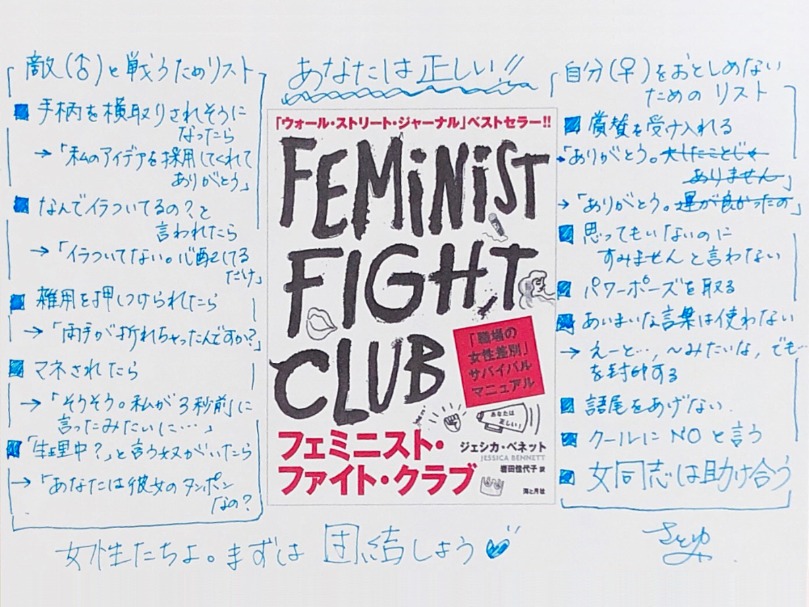 あなたは正しい!!
敵(♂)と戦うためのリスト
手柄を横取りされそうに
なったら
→「私のアイデアを採用してくれて
ありがとう」
なんでイラついてるの?と
言われたら
→「イラついてない。心配してる
だけ」
雑用を押しつけられたら
→「両手が折れちゃったんですか?」
マネされたら
→「そうそう。私が3秒前に
言ったみたいに…」
「生理中?」と言う奴がいたら
→「あなたは彼女のタンポン
なの?
「ウォール・ストリート・ジャーナル」ベストセラー!!
FEMINIST
FIGHT
CLUB
「職場の
女性差別」
サバイバル
マニュアル
あなたは
正しい!
フェミニスト・
ファイト・クラブ
ジェシカ・ベネット
JESSICA BENNETT
岩田佳代子 訳
海と月社
自分(♀)をおとしめない
ための リスト
賞賛を受け入れる
→「ありがとう。大したことじゃ
ありません」
→「ありがとう。運が良かったの」
思ってもいないのに
すみませんと言わない
パワーポーズを取る
あいまいな言葉は使わない
→ えーと…,~みたいな,でも…
を封印する
語尾をあげない
クールにNOと言う
女同志は助け合う
女性たちよ。まずは 団結しよう